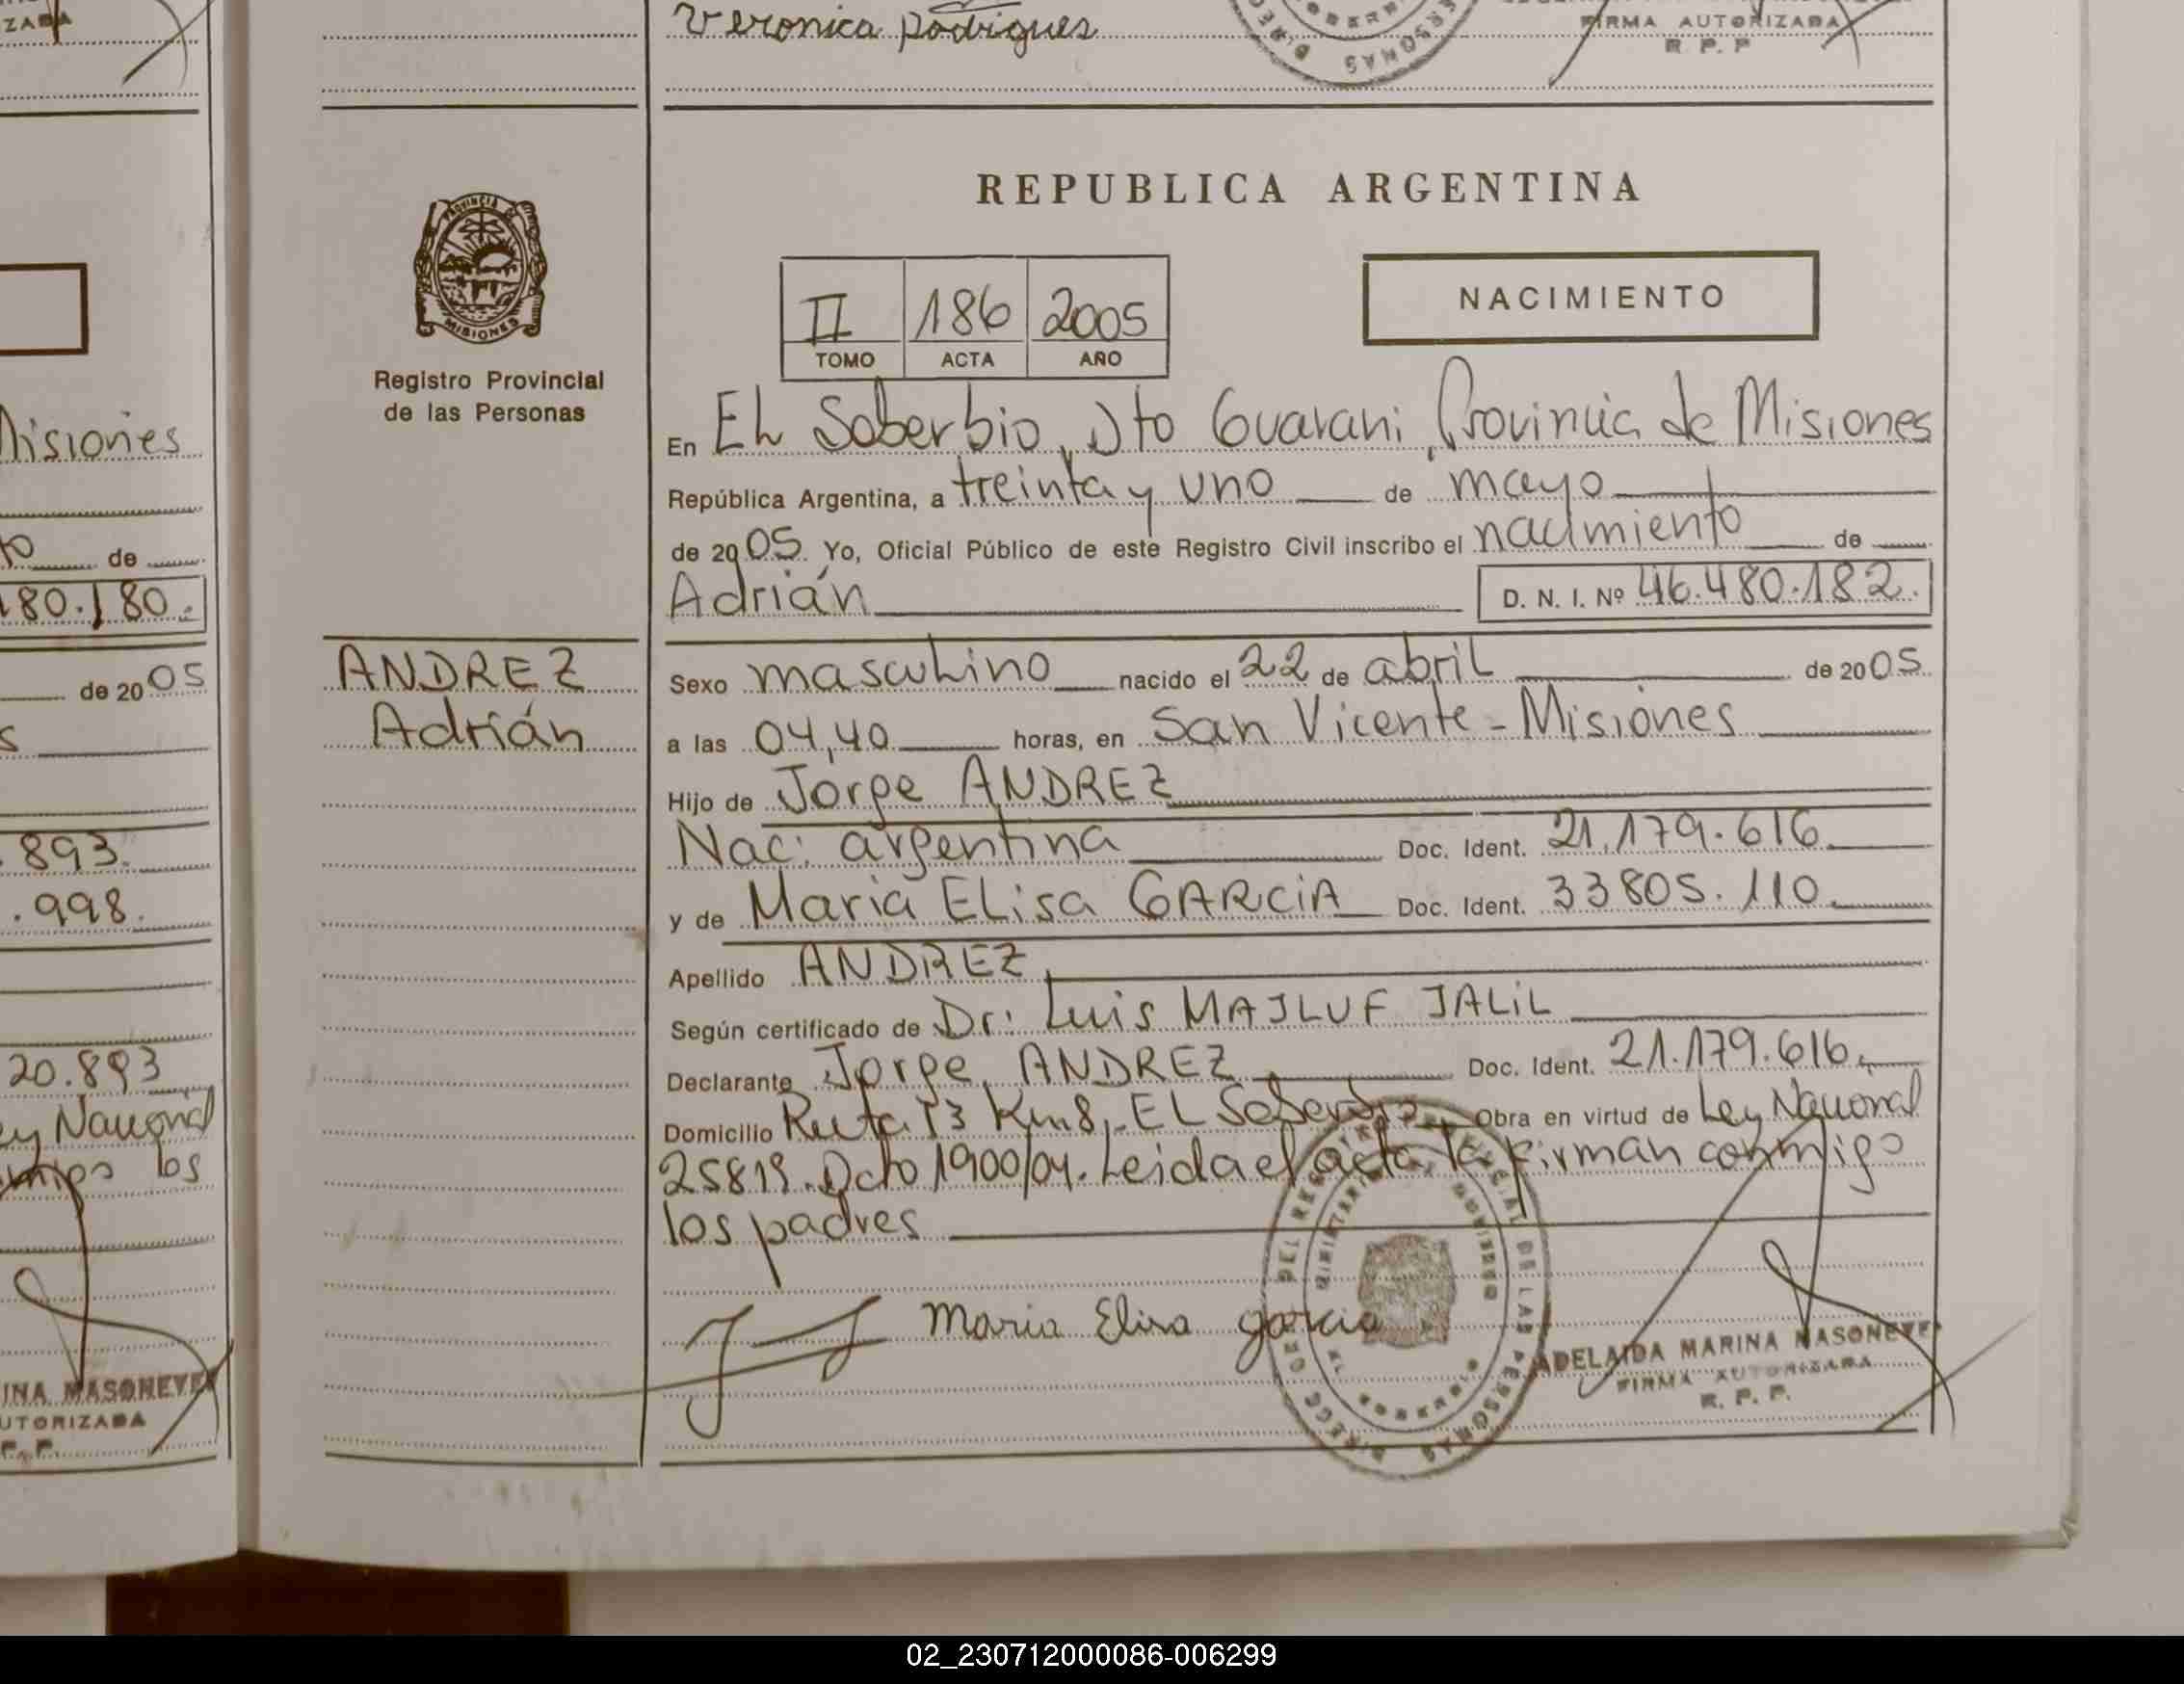 ZADA
Veronica Rodrigues
FIRMA AUTORIZADA
R. P. P
PROVINCIA DE
MISIONES
Registro Provincial
de las Personas
REPUBLICA ARGENTINA
II 186 2005
TOMO ACTA AÑO
NACIMIENTO
En EL Soberbio, Dto Guarani, Provincia de Misiones
República Argentina, a treinta y uno de mayo
de 2005. Yo, Oficial Público de este Registro Civil inscribo el nacimiento de
Adrián
D. N. I. Nº 46.480.182.
ANDREZ
Adrián
Sexo masculino nacido el 22 de abril de 2005.
a las 04,40 horas, en San Vicente - Misiones
Hijo de Jorge ANDREZ
Nac. argentina Doc. Ident. 21.179.616
y de Maria ELisa GARCIA Doc. Ident. 33805.110
Apellido ANDREZ
Según certificado de Dr. Luis MAJLUF JALIL
Declarante Jorge ANDREZ Doc. Ident. 21.179.616
Domicilio Ruta 13 Km8, EL Soberbio Obra en virtud de Ley Nacional
25819. Dcto 1900/04. Leida el acta, la firman conmigo
los padres
Maria Elisa garcia
ADELAIDA MARINA MASONEVE
FIRMA AUTORIZADA
R. P. P.
Misiones
de
180.180.
de 2005
893.
.998.
20.893
ey Nacional
los
INA MASONEVE
UTORIZADA
P. P.
02_230712000086-006299